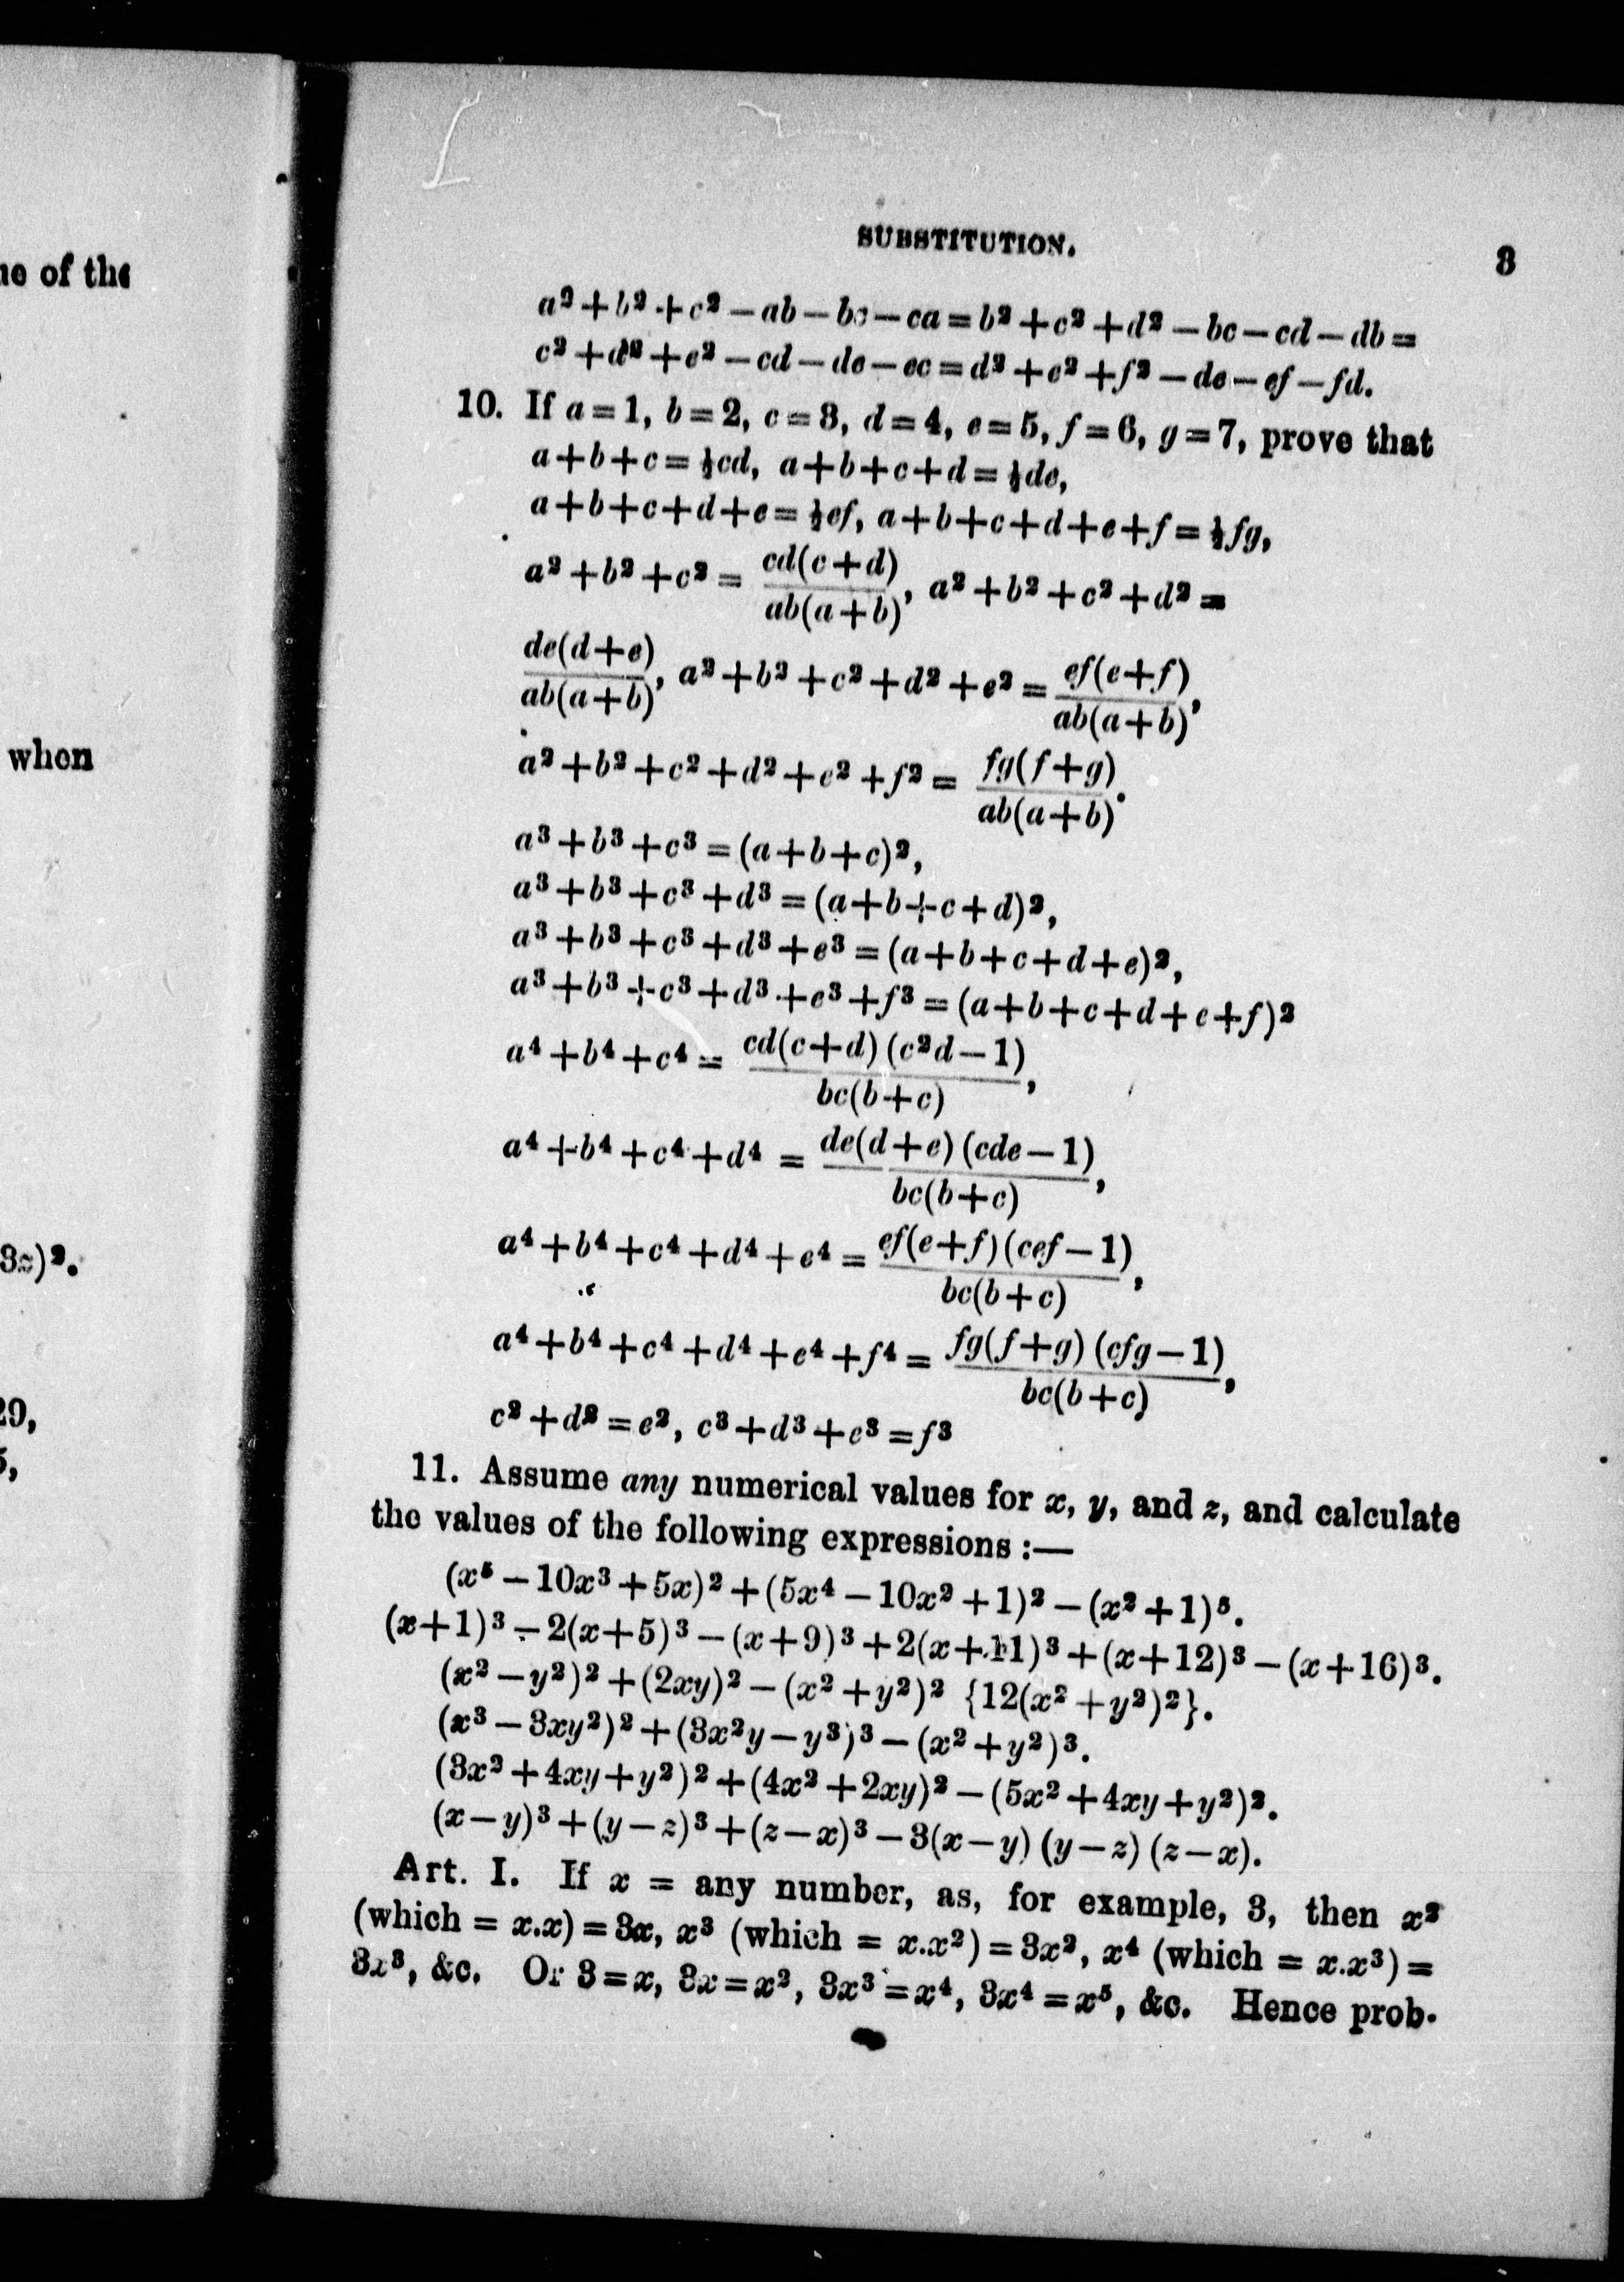 ne of the
when
3z)².
29,
5,
SUBSTITUTION. 3
a²+b²+c²−ab−bc−ca=b²+c²+d²−bc−cd−db=
c²+d²+e²−cd−de−ec=d²+e²+f²−de−ef−fd.
10. If a=1, b=2, c=3, d=4, e=5, f=6, g=7, prove that
a+b+c=½cd, a+b+c+d=½de,
a+b+c+d+e=½ef, a+b+c+d+e+f=½fg,
a²+b²+c² = cd(c+d)/ab(a+b), a²+b²+c²+d² =
de(d+e)/ab(a+b), a²+b²+c²+d²+e² = ef(e+f)/ab(a+b),
a²+b²+c²+d²+e²+f² = fg(f+g)/ab(a+b).
a³+b³+c³=(a+b+c)²,
a³+b³+c³+d³=(a+b+c+d)²,
a³+b³+c³+d³+e³=(a+b+c+d+e)²,
a³+b³+c³+d³+e³+f³=(a+b+c+d+e+f)²
a⁴+b⁴+c⁴ = cd(c+d)(c²d−1)/bc(b+c),
a⁴+b⁴+c⁴+d⁴ = de(d+e)(cde−1)/bc(b+c),
a⁴+b⁴+c⁴+d⁴+e⁴ = ef(e+f)(cef−1)/bc(b+c),
a⁴+b⁴+c⁴+d⁴+e⁴+f⁴ = fg(f+g)(cfg−1)/bc(b+c),
c²+d²=e², c³+d³+e³=f³
11. Assume any numerical values for x, y, and z, and calculate
the values of the following expressions :—
(x⁵−10x³+5x)²+(5x⁴−10x²+1)²−(x²+1)⁵.
(x+1)³−2(x+5)³−(x+9)³+2(x+11)³+(x+12)³−(x+16)³.
(x²−y²)²+(2xy)²−(x²+y²)² {12(x²+y²)²}.
(x³−3xy²)²+(3x²y−y³)³−(x²+y²)³.
(3x²+4xy+y²)²+(4x²+2xy)²−(5x²+4xy+y²)².
(x−y)³+(y−z)³+(z−x)³−3(x−y) (y−z) (z−x).
Art. I. If x = any number, as, for example, 3, then x²
(which = x.x)=3x, x³ (which = x.x²)=3x², x⁴ (which = x.x³)=
3x³, &c. Or 3=x, 3x=x², 3x³=x⁴, 3x⁴=x⁵, &c. Hence prob-